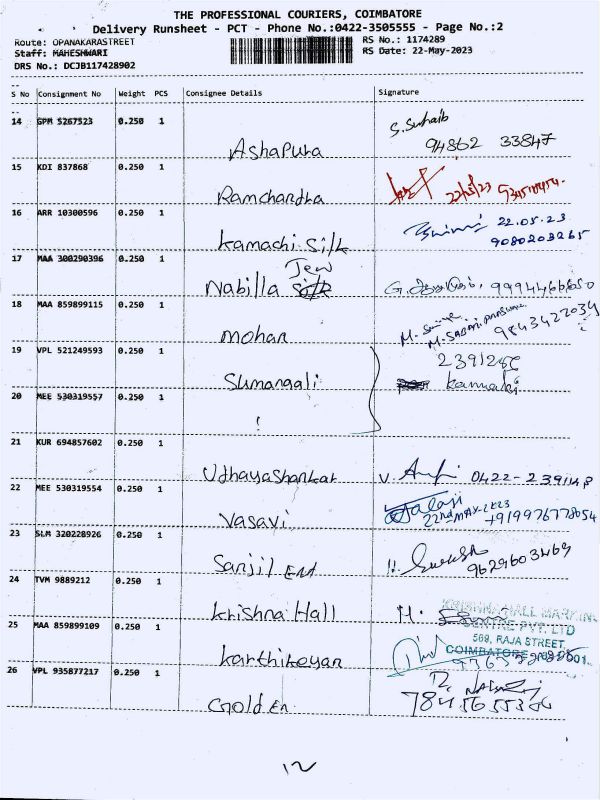 THE PROFESSIONAL COURIERS, COIMBATORE
Delivery Runsheet - PCT - Phone No.:0422-3505555 - Page No.:2
Route: OPANAKARASTREET
RS No.: 1174289
Staff: MAHESHWARI
RS Date: 22-May-2023
DRS No.: DCJB117428902
S No Consignment No Weight PCS Consignee Details Signature
14 GPM 5267523 0.250 1
S. Suhaib
94862 33847
Ashapura
15 KDI 837868 0.250 1
Ramchandra
22/5/23
16 ARR 10300596 0.250 1
22.05.23
9080203265
Kamachi Silk
17 MAA 300290396 0.250 1
Jew
Nabilla
18 MAA 859899115 0.250 1
9843427034
Mohan
19 VPL 521249593 0.250 1
Sumangali
Kannaki
20 MEE 530319557 0.250 1
21 KUR 694857602 0.250 1
Udhayashankar V. 0422-
22 MEE 530319554 0.250 1
Balaji
22nd MAY-2023
+919976778054
Vasavi
23 SLM 320228926 0.250 1
Suresh
9629603469
Sanjil Ent
24 TVM 9889212 0.250 1
Krishna Hall M.
KRISHNA HALL MARKING
CENTRE PVT. LTD
569, RAJA STREET,
COIMBATORE
25 MAA 859899109 0.250 1
Karthikeyan
26 VPL 935877217 0.250 1
Golden
12